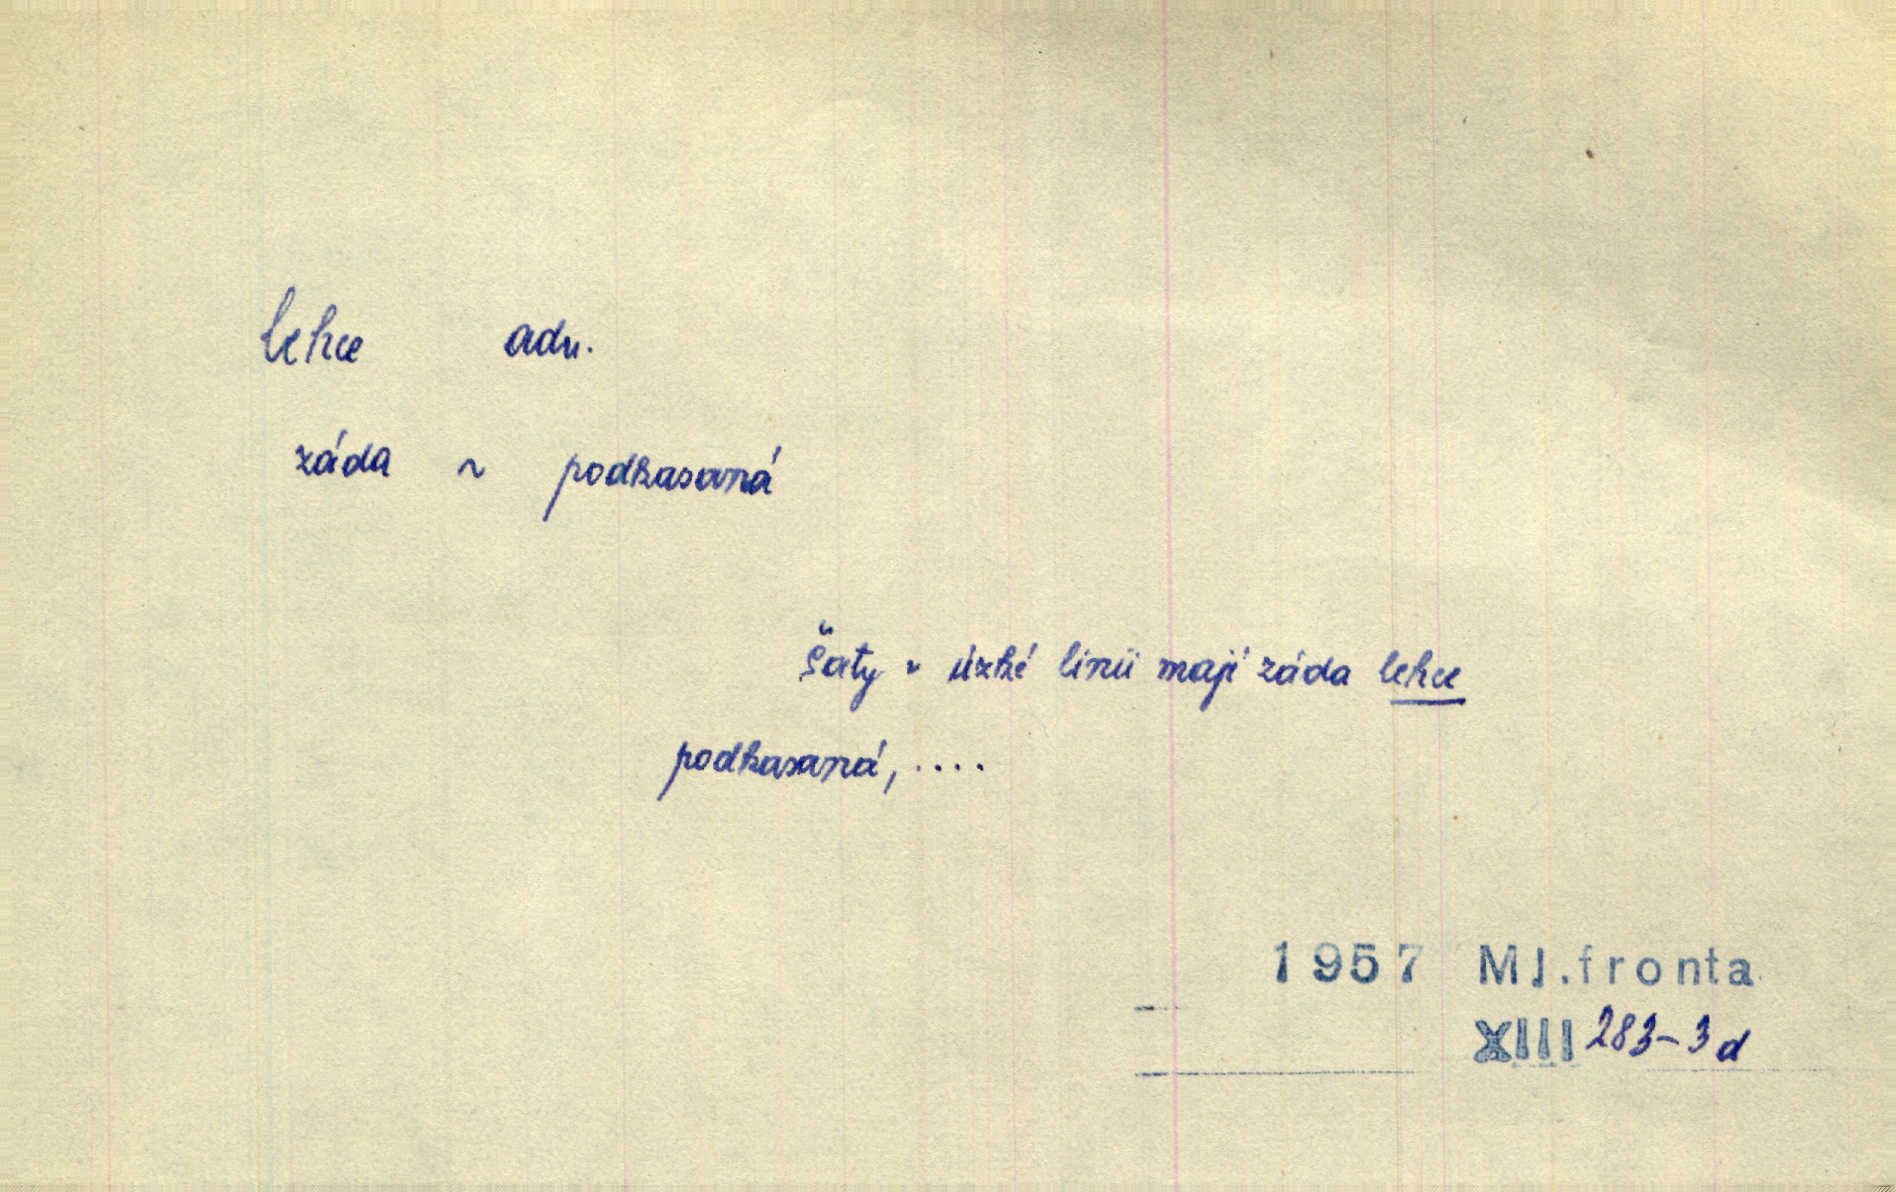 lehce adv.
záda ~ podkasaná
šaty v úzké linii mají záda lehce
podkasaná, ....
1957 Ml.fronta
XIII 283-3d